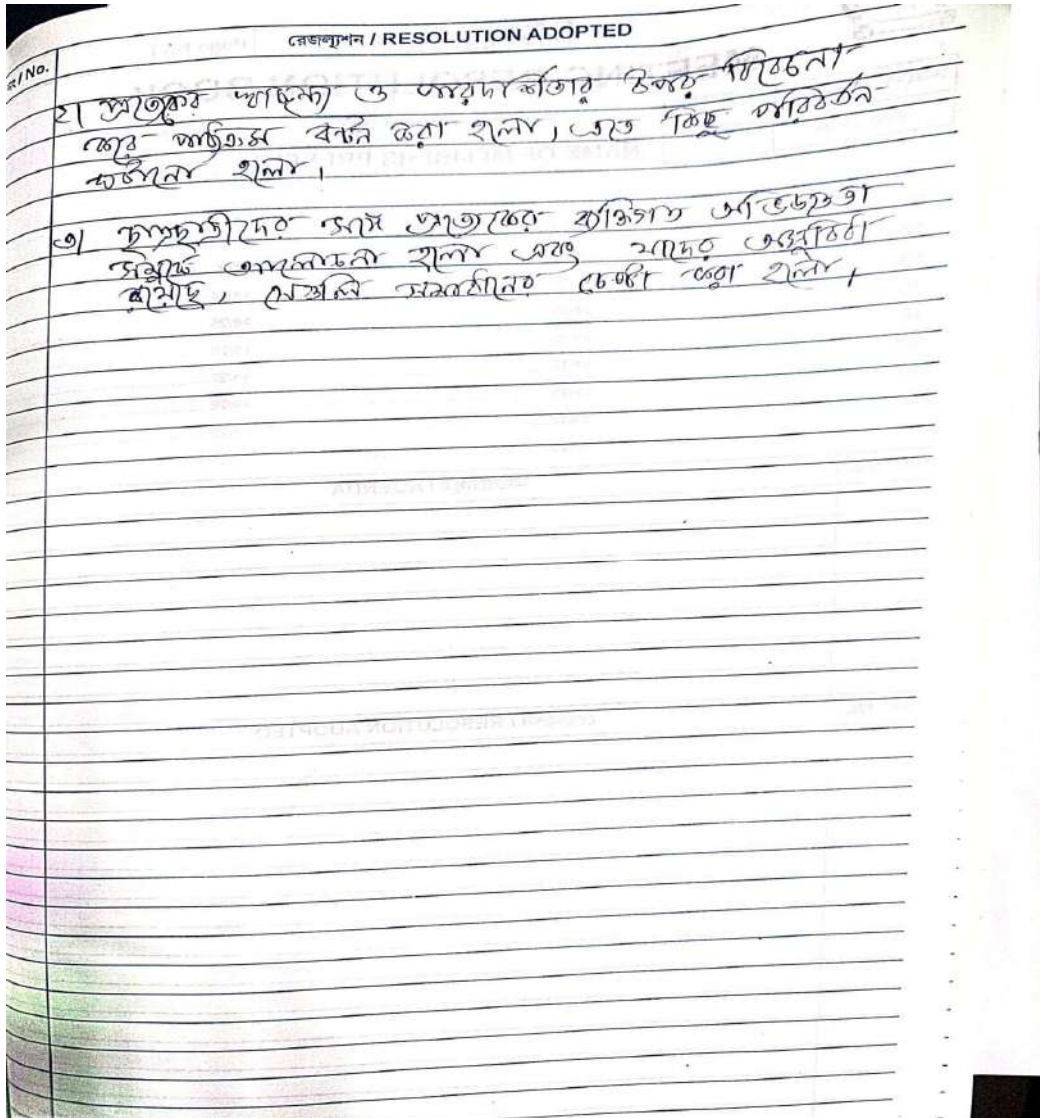 রেজল্যুশন / RESOLUTION ADOPTED
/ No.
২| প্রত্যেকের স্বাচ্ছন্দ্য ও পারদর্শিতার উপর বিবেচনা
করে পাঠক্রম বন্টন করা হলো, এতে কিছু পরিবর্তন
ঘটানো হলো।
৩| ছাত্রছাত্রীদের সঙ্গে প্রত্যেকের ব্যক্তিগত অভিজ্ঞতা
সম্পর্কে আলোচনা হলো এবং যাদের অসুবিধা
রয়েছে, সেগুলি সমাধানের চেষ্টা করা হলো,